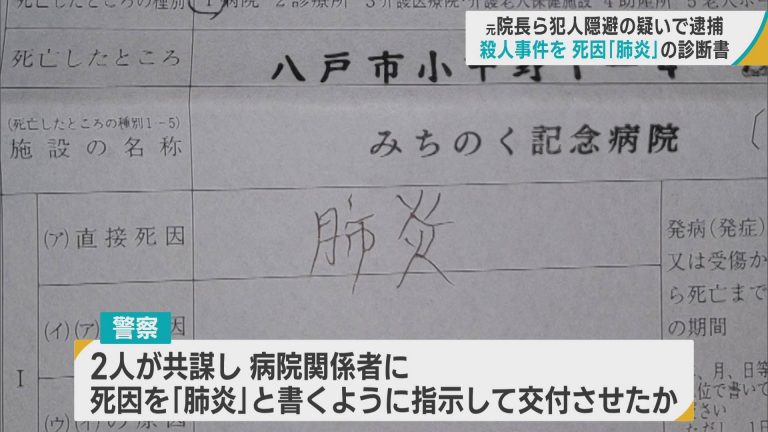 元院長ら犯人隠避の疑いで逮捕
殺人事件を 死因「肺炎」の診断書
死亡したところの種別 1 病院 2 診療所 3 介護医療院・介護老人保健施設 4 助産所 5 老人ホ
死亡したところ
八戸市小中野
(死亡したところの種別1-5)
施設の名称
みちのく記念病院
I
(ア)直接死因
肺炎
発病(発症)
又は受傷か
ら死亡まで
の期間
(イ)(ア)
因
月、日等
位で書いて
ださい
(ウ)
の原因
警察
2人が共謀し 病院関係者に
死因を「肺炎」と書くように指示して交付させたか